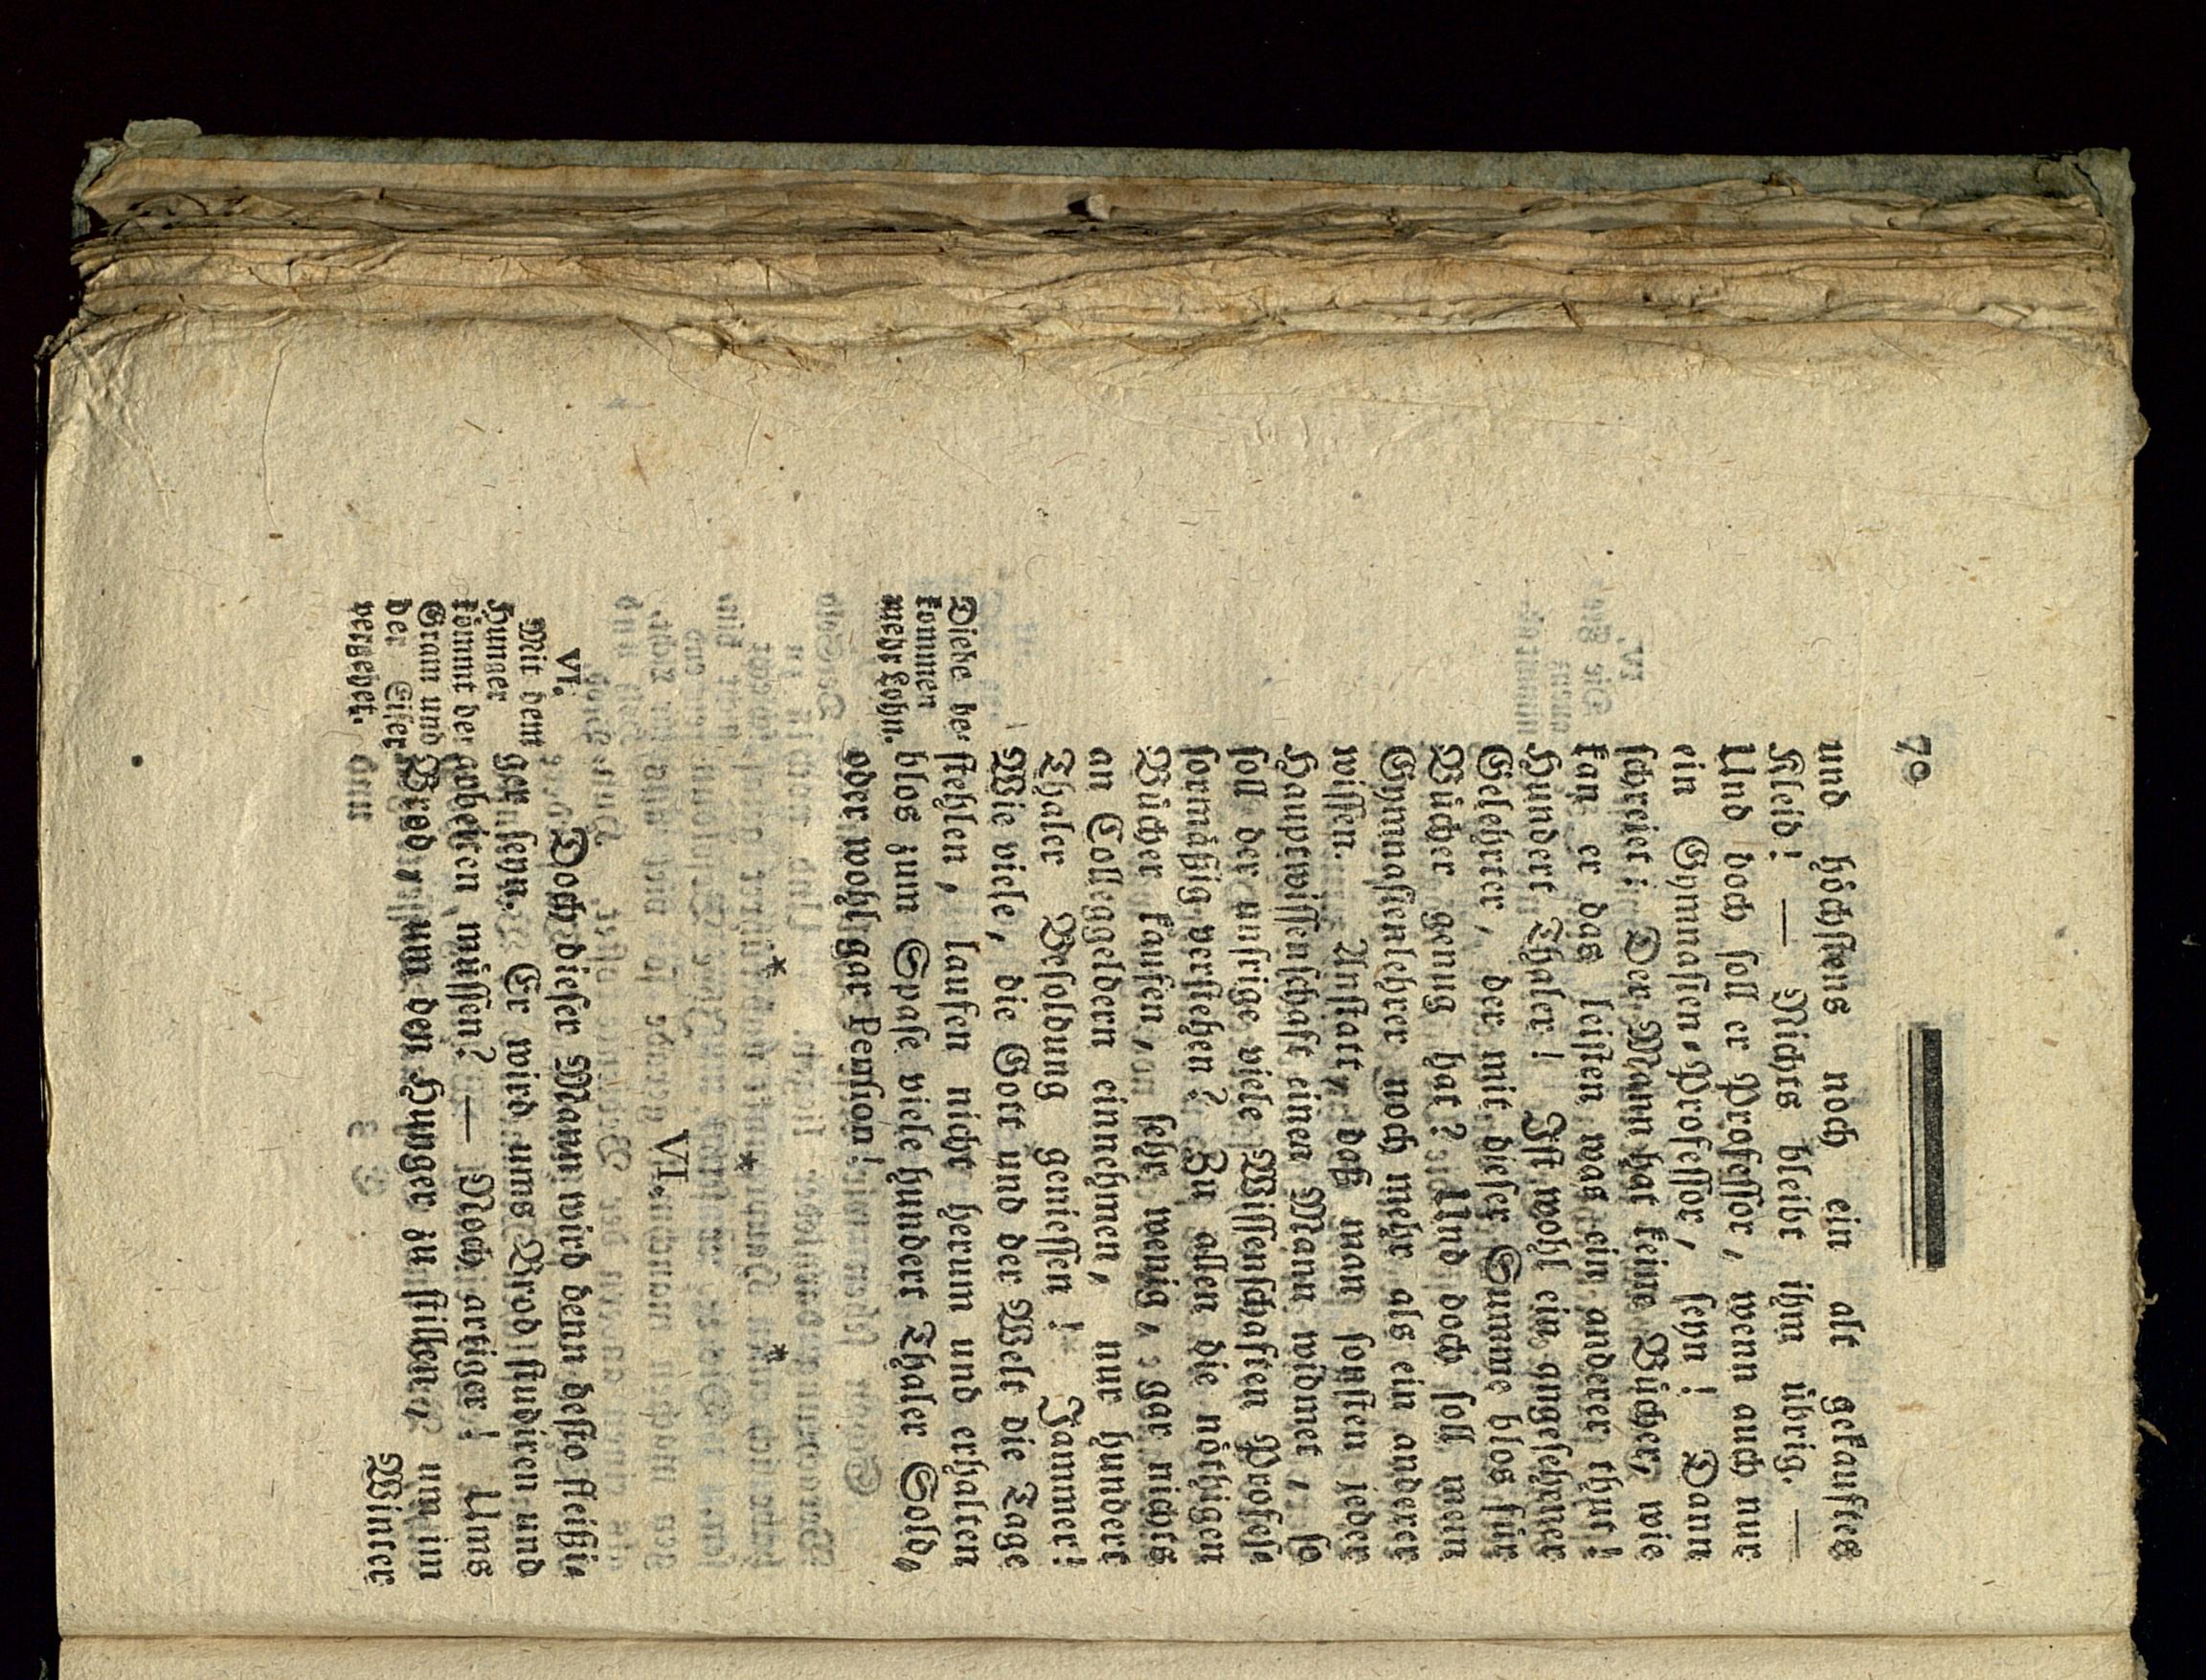 70
und höchstens noch ein alt gekauftes
Kleid! — Nichts bleibt ihm übrig. —
Und doch soll er Professor, wenn auch nur
ein Gymnasien-Professor, seyn! Dann
schreiet: Der Mann hat keine Bücher, wie
kan er das leisten was ein anderer thut!
Hundert Thaler! Ist wohl ein angesehener
Gelehrter, der mit dieser Summe blos für
Bücher genug hat? Und doch soll mein
Gymnasienlehrer noch mehr als ein anderer
wissen. Anstatt, daß man sonsten jeder
Hauptwissenschaft einen Mann widmet, so
soll der unsrige viele Wissenschaften Profess
sormäßig verstehen? Zu allen die nöthigen
Bücher kaufen, sehr wenig, gar nichts
an Colleggeldern einnehmen, nur hundert
Thaler Besoldung geniessen! Jammer!
Wie viele, die Gott und der Welt die Tage
Diebe be-
kommen
mehr Lohn.
stehlen, laufen nicht herum und erhalten
blos zum Spase viele hundert Thaler Sold,
oder wohl gar Pension!
* * *
VI.
VI.
Mit dem
Hunger
kömmt der
Gram und
der Eifer
vergehet.
Doch dieser Mann wird denn desto fleißi-
ger seyn. Er wird ums Brod studiren und
arbeiten müssen? — Noch artiger! Ums
Brod, um den Hunger zu stillen, um im
Winter